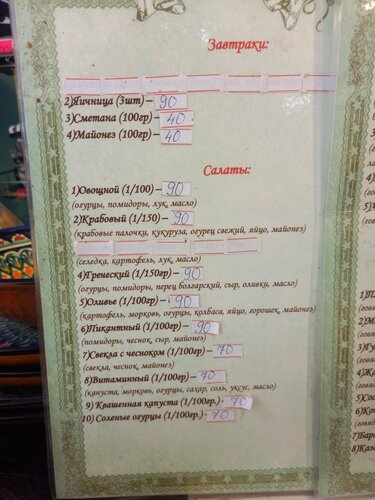 Завтраки:
2)Яичница (3шт)– 90
3)Сметана (100гр) – 40
4)Майонез (100гр) – 40
Салаты:
1)Овощной (1/100) – 90
(огурцы, помидоры, лук, масло)
2)Крабовый (1/150) – 90
(крабовые палочки, кукуруза, огурец свежий, яйцо, майонез)
(селедка, картофель, лук, масло)
4)Греческий (1/150гр) – 90
(огурцы, помидоры, перец болгарский, сыр, оливки, масло)
5)Оливье (1/100гр) – 90
(картофель, морковь, огурцы, колбаса, яйцо, горошек, майонез)
6)Пикантный (1/100гр) – 90
(помидоры, чеснок, сыр, майонез)
7)Свекла с чесноком (1/100гр) – 70
(свекла, чеснок, майонез)
8)Витаминный (1/100гр) – 70
(капуста, морковь, огурцы, сахар, соль, уксус, масло)
9) Квашенная капуста (1/100гр.)- 70
10) Соленые огурцы (1/100гр.)- 70